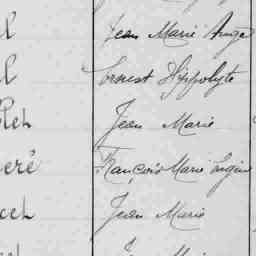 l Jean Marie Ange
l Ernest Hippolyte
let Jean Marie
eré François Marie Eugène
cel Jean Marie